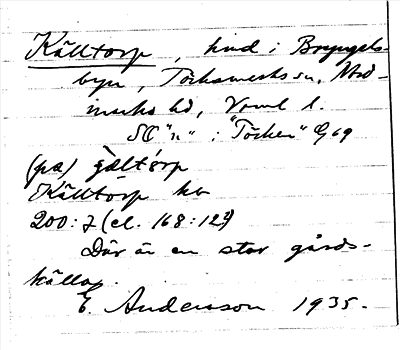 Källtorp, hmd i Bryngels-
byn, Töcksmarks sn, Nord-
marks hd, Vrml l.
SO "n" i "Töcken" G 69
(på) ɟältɔrp
Källtorp hb
200:7 (el. 168:12?)
Där är en stor gårds-
källa.
E. Andersson 1935.